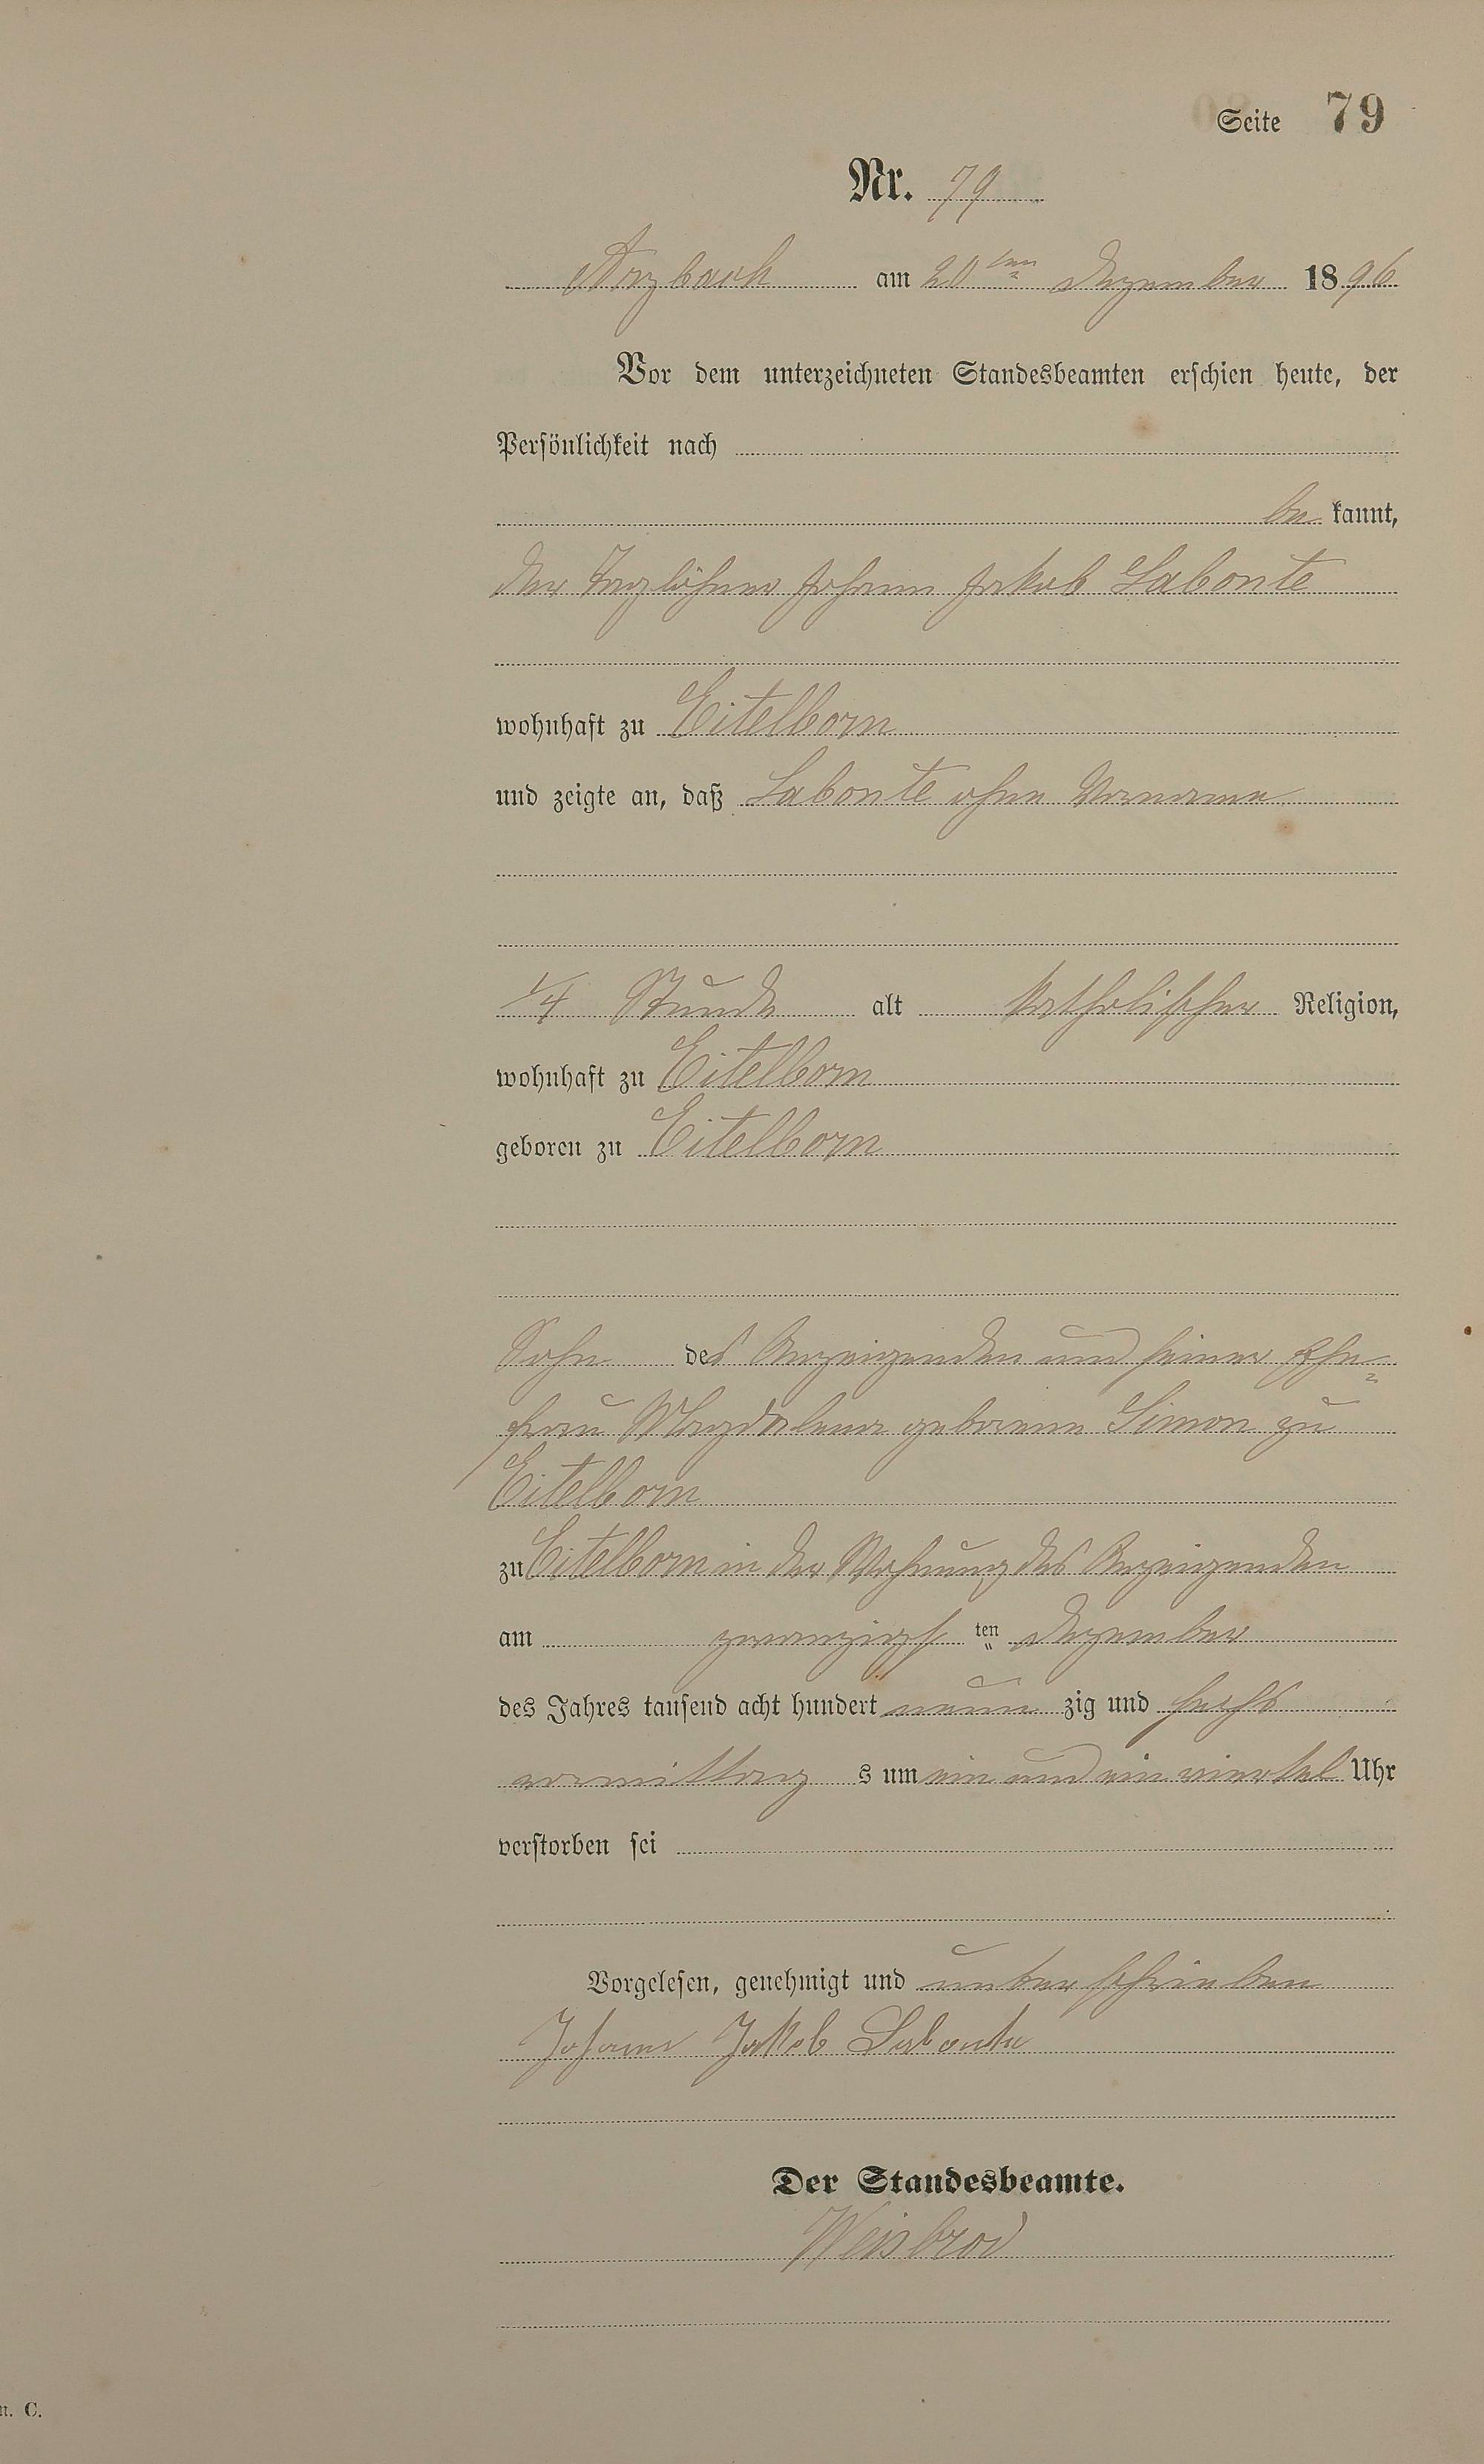 Seite 79
Nr. 79
Arzbach am 20ten Dezember 1896
Vor dem unterzeichneten Standesbeamten erschien heute, der
Persönlichkeit nach
be kannt,
der Taglöhner Johann Jakob Labonte
wohnhaft zu Eitelborn
und zeigte an, daß Labonte ohne Vorname
1/4 Stunde alt katholischer Religion,
wohnhaft zu Eitelborn
geboren zu Eitelborn
Sohn des Anzeigenden und seiner Ehe=
frau Magdalena geborene Simon zu
Eitelborn
zu Eitelborn in der Wohnung des Anzeigenden
am zwanzigs ten Dezember
des Jahres tausend acht hundert neun zig und sechs
vormittag s um ein und ein viertel Uhr
verstorben sei
Vorgelesen, genehmigt und unterschrieben
Johann Jakob Labonte
Der Standesbeamte.
Weisbrod
n. C.